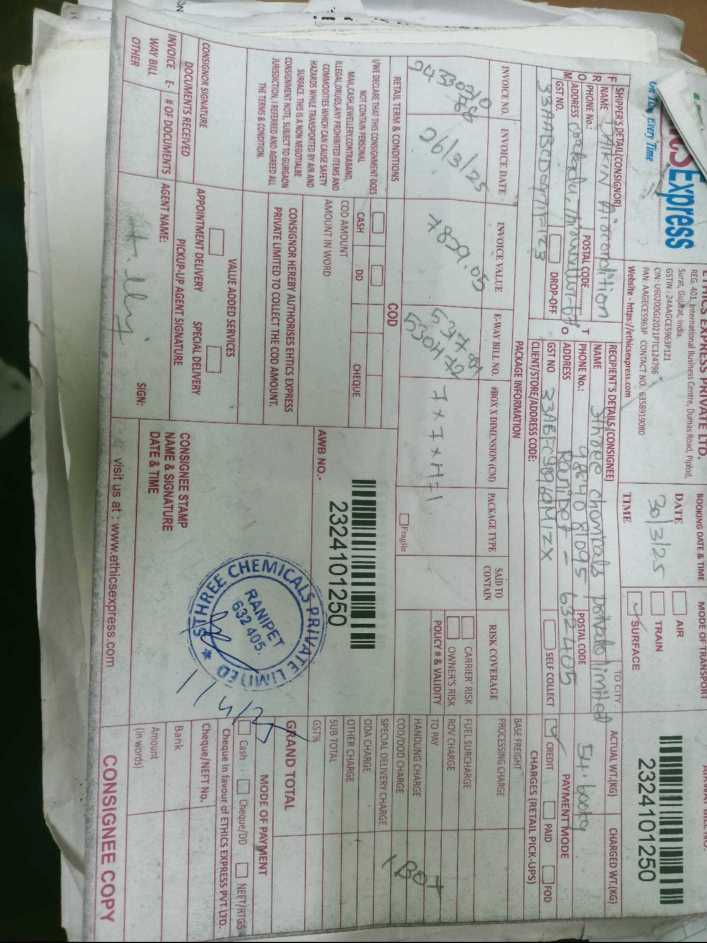 ETHICS EXPRESS PRIVATE LTD.
REG. 401, International Business Centre, Dumas Road, Piplod,
Surat, Gujarat, India.
GSTIN : 24AAGCE5963P1Z1
PAN: AAGCE5963P CONTACT NO. 6358919080
Website - https://ethicsexpress.com
Express
Every Time
BOOKING DATE & TIME
DATE 30/3/25
TIME
MODE OF TRANSPORT
AIR
TRAIN
SURFACE
2324101250
SHIPPER'S DETAIL (CONSIGNOR)
NAME DAIKIN Aircondition
PHONE No.:
POSTAL CODE
ADDRESS
GST NO.
DROP-OFF
RECIPIENT'S DETAILS (CONSIGNEE)
NAME 3three chemicals private limited
PHONE No.: 98940 81095
POSTAL CODE
ADDRESS Ranipet - 632405
GST NO
SELF COLLECT
CLIENT/STORE/ADDRESS CODE:
TO CITY
ACTUAL WT.(KG)
CHARGED WT.(KG)
PAYMENT MODE
CREDIT
PAID
FOD
CHARGES (RETAIL PICK-UPS)
PACKAGE INFORMATION
INVOICE NO.
INVOICE DATE
INVOICE VALUE
E-WAY BILL NO.
#BOX X DIMENSION (CM)
PACKAGE TYPE
SAID TO CONTAIN
RISK COVERAGE
26/3/25
7829.05
Fragile
CARRIER' RISK
OWNER'S RISK
POLICY # & VALIDITY
BASE FREIGHT
PROCESSING CHARGE
FUEL SURCHARGE
ROV CHARGE
TO PAY
HANDLING CHARGE
COD/DOD CHARGE
SPECIAL DELIVERY CHARGE
ODA CHARGE
OTHER CHARGE
SUB TOTAL
GST%
GRAND TOTAL
1 BOX
RETAIL TERM & CONDITIONS
I/WE DECLARE THAT THIS CONSIGNMENT DOES
NOT CONTAIN PERSONAL
MAIL,CASH,JEWELLERY,CONTRABAND,
ILLEGAL DRUGS,ANY PROHIBITED ITEMS AND
COMMODITIES WHICH CAN CAUSE SAFETY
HAZARDS WHILE TRANSPORTED BY AIR AND
SURFACE. THIS IS A NON NEGOTIALBE
CONSIGNMENT NOTE, SUBJECT TO GURGAON
JURISDICTION, I REFERRED AND AGREED ALL
THE TERMS & CONDITION.
CONSIGNOR SIGNATURE
COD
CASH
DD
CHEQUE
COD AMOUNT
AMOUNT IN WORD
CONSIGNOR HEREBY AUTHORISES EHTICS EXPRESS
PRIVATE LIMITED TO COLLECT THE COD AMOUNT.
VALUE ADDED SERVICES
APPOINTMENT DELIVERY
SPECIAL DELIVERY
DOCUMENTS RECEIVED
INVOICE E-
WAY BILL
OTHER
# OF DOCUMENTS
AGENT NAME:
PICKUP-UP AGENT SIGNATURE
SIGN:
AWB NO.-
2324101250
CONSIGNEE STAMP
NAME & SIGNATURE
DATE & TIME
3THREE CHEMICALS PRIVATE LIMITED
RANIPET
632 405
1/4/25
MODE OF PAYMENT
Cash
Cheque/DD
NEFT/RTGS
Cheque in favour of ETHICS EXPRESS PVT LTD.
Cheque/NEFT No.
Bank
Amount
(in words)
visit us at : www.ethicsexpress.com
CONSIGNEE COPY